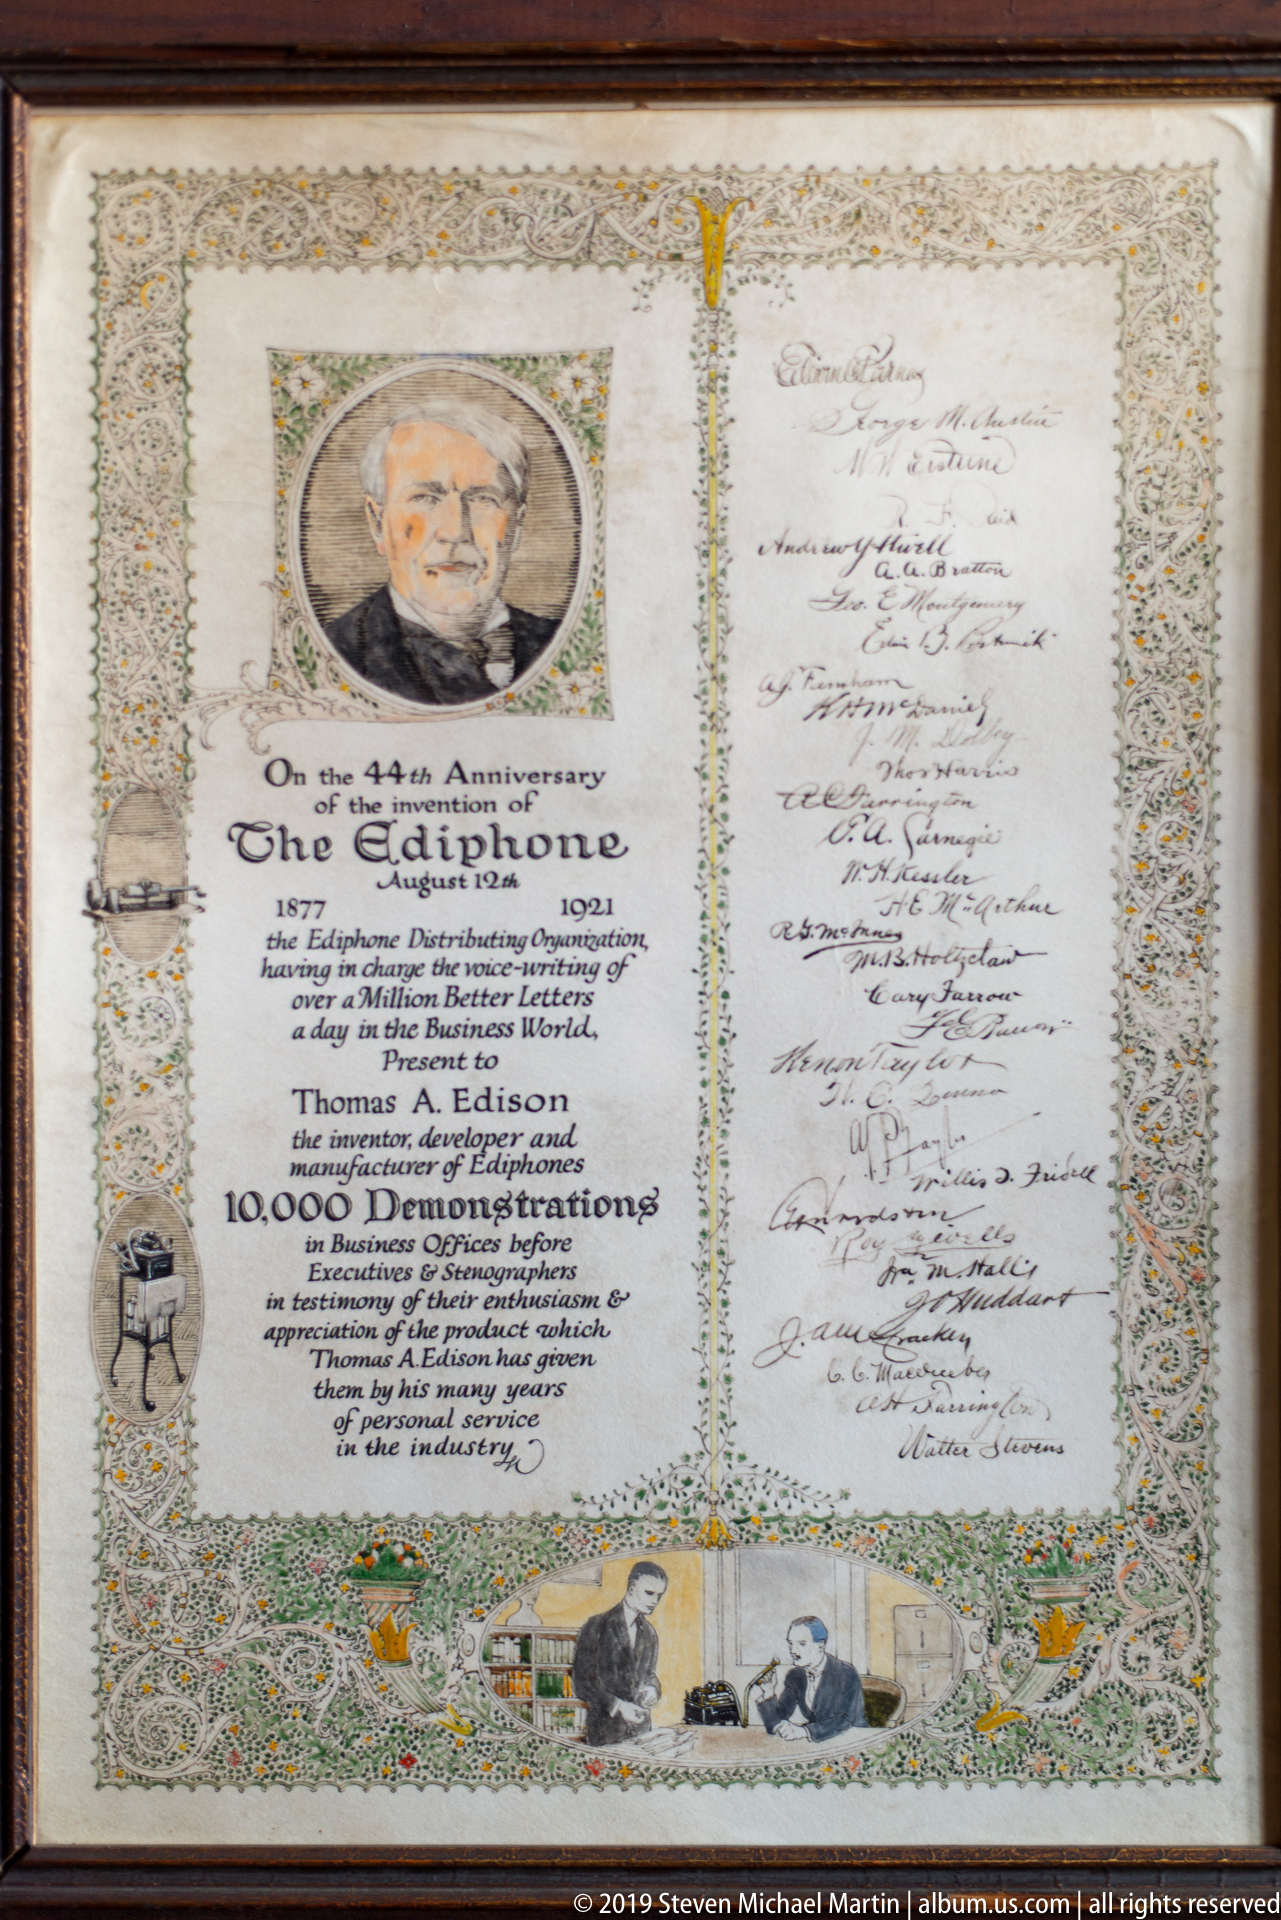 On the 44th Anniversary
of the invention of
The Ediphone
August 12th
1877 1921
the Ediphone Distributing Organization,
having in charge the voice-writing of
over a Million Better Letters
a day in the Business World,
Present to
Thomas A. Edison
the inventor, developer and
manufacturer of Ediphones
10,000 Demonstrations
in Business Offices before
Executives & Stenographers
in testimony of their enthusiasm &
appreciation of the product which
Thomas A. Edison has given
them by his many years
of personal service
in the industry
George M. Austin
R. F. Reid
A. A. Bratton
Geo. E Montgomery
A.J. Farnham
McDaniel
J. M. Dolby
Thos Harris
A C Farrington
Carnegie
W. H. Kessler
H E McArthur
R. G. McInnes
M. B. Holtzclaw
Cary Farrow
Taylor
Willis
Roy
M. Halls
J O Huddart
C. C. Macomber
A H Farrington
Walter Stevens
© 2019 Steven Michael Martin | album.us.com | all rights reserved